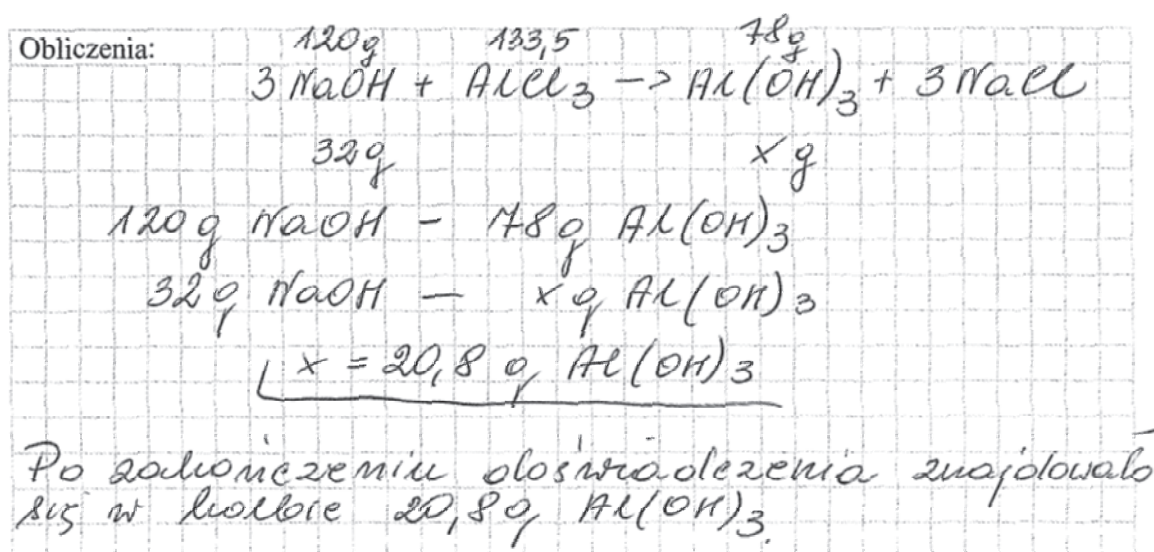 Obliczenia:
120g 133,5 78g
3 NaOH + AlCl₃ -> Al(OH)₃ + 3 NaCl
32g x g
120 g NaOH - 78g Al(OH)₃
32 g NaOH — x g Al(OH)₃
x = 20,8 g Al(OH)₃
Po zakończeniu doświadczenia znajdowało
się w kolbie 20,8g Al(OH)₃.